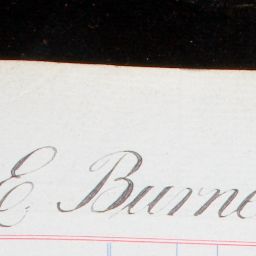 E. Burne